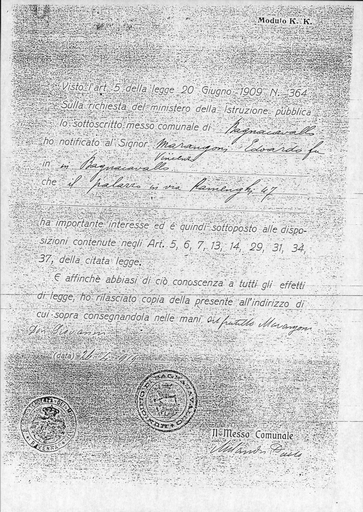 Modulo K. K.
Visto l'art. 5 della legge 20 Giugno 1909 N. 364
Sulla richiesta del ministero della Istruzione pubblica
Io sottoscritto messo comunale di Bagnacavallo
ho notificato al Signor Marangoni Edoardo fu
in Bagnacavallo
che il palazzo in via Ramenghi 47
ha importante interesse ed è quindi sottoposto alle dispo-
sizioni contenute negli Art. 5, 6, 7, 13, 14, 29, 31, 34,
37, della citata legge.
E affinchè abbiasi di ciò conoscenza a tutti gli effetti
di legge, ho rilasciato copia della presente all'indirizzo di
cui sopra consegnandola nelle mani fratello Marangoni
(data)
Il Messo Comunale